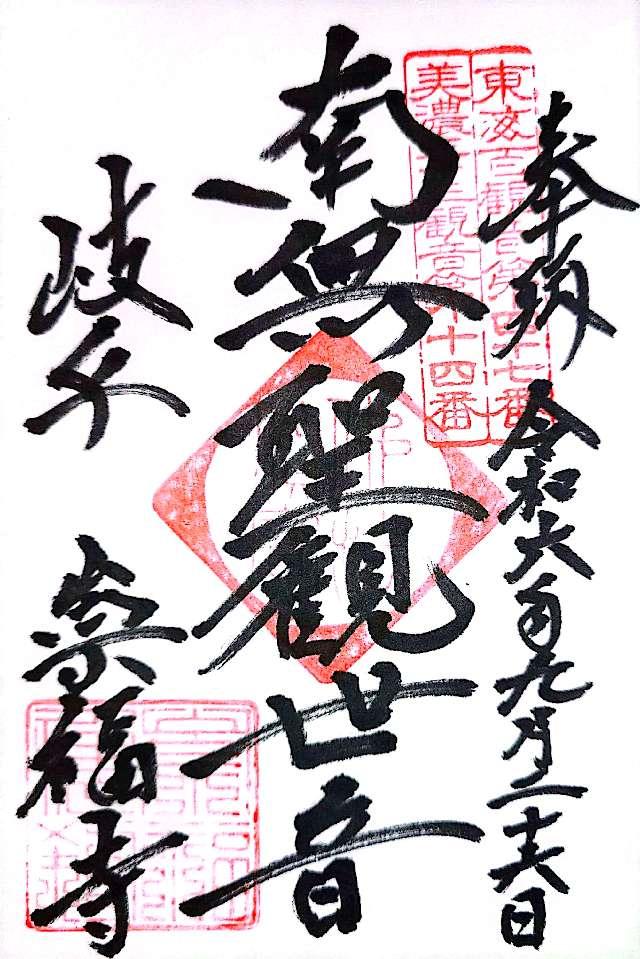 奉納
令和六年九月二十六日
東海百観音第四十七番
美濃三十三観音第十四番
南無聖観世音
岐阜
崇福寺